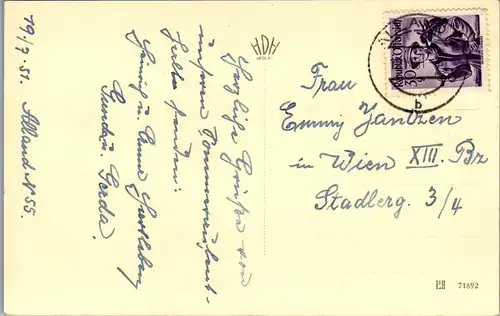 19./7. 51. Alland N 55.
Herzliche Grüße von
unserem Sommeraufent-
halte senden:
Heinrich u. Anna
Gundi u. Gerda.
HDH
Frau
Emmy Jantzen
in Wien XIII. Bz
Stadlerg. 3/4
ALLAND
b
REPUBLIK ÖSTERREICH
30
71892